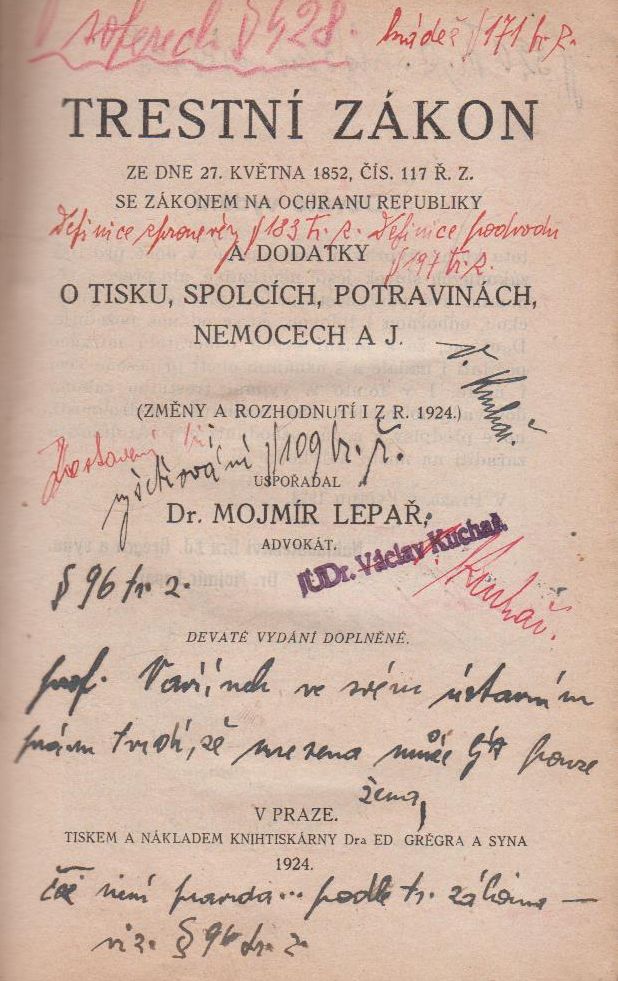 § 428.
krádež § 171 tr. z.
TRESTNÍ ZÁKON
ZE DNE 27. KVĚTNA 1852, ČÍS. 117 Ř. Z.
SE ZÁKONEM NA OCHRANU REPUBLIKY
Definice zpronevěry § 183 tr. z. Definice podvodu
A DODATKY
§ 197 tr. z.
O TISKU, SPOLCÍCH, POTRAVINÁCH,
NEMOCECH A J.
V. Kuchař.
(ZMĚNY A ROZHODNUTÍ I Z R. 1924.)
§ 109 tr. ř.
USPOŘÁDAL
Dr. MOJMÍR LEPAŘ,
ADVOKÁT.
JUDr. Václav Kuchař
Kuchař.
§ 96 tr. z.
DEVATÉ VYDÁNÍ DOPLNĚNÉ.
prof. Vavřínek ve svém ústavním
právu tvrdí, že unesena může být pouze
žena,
V PRAZE.
TISKEM A NÁKLADEM KNIHTISKÁRNY Dra ED. GRÉGRA A SYNA
1924.
což není pravda... podle tr. zákona —
viz. § 96 tr. z.